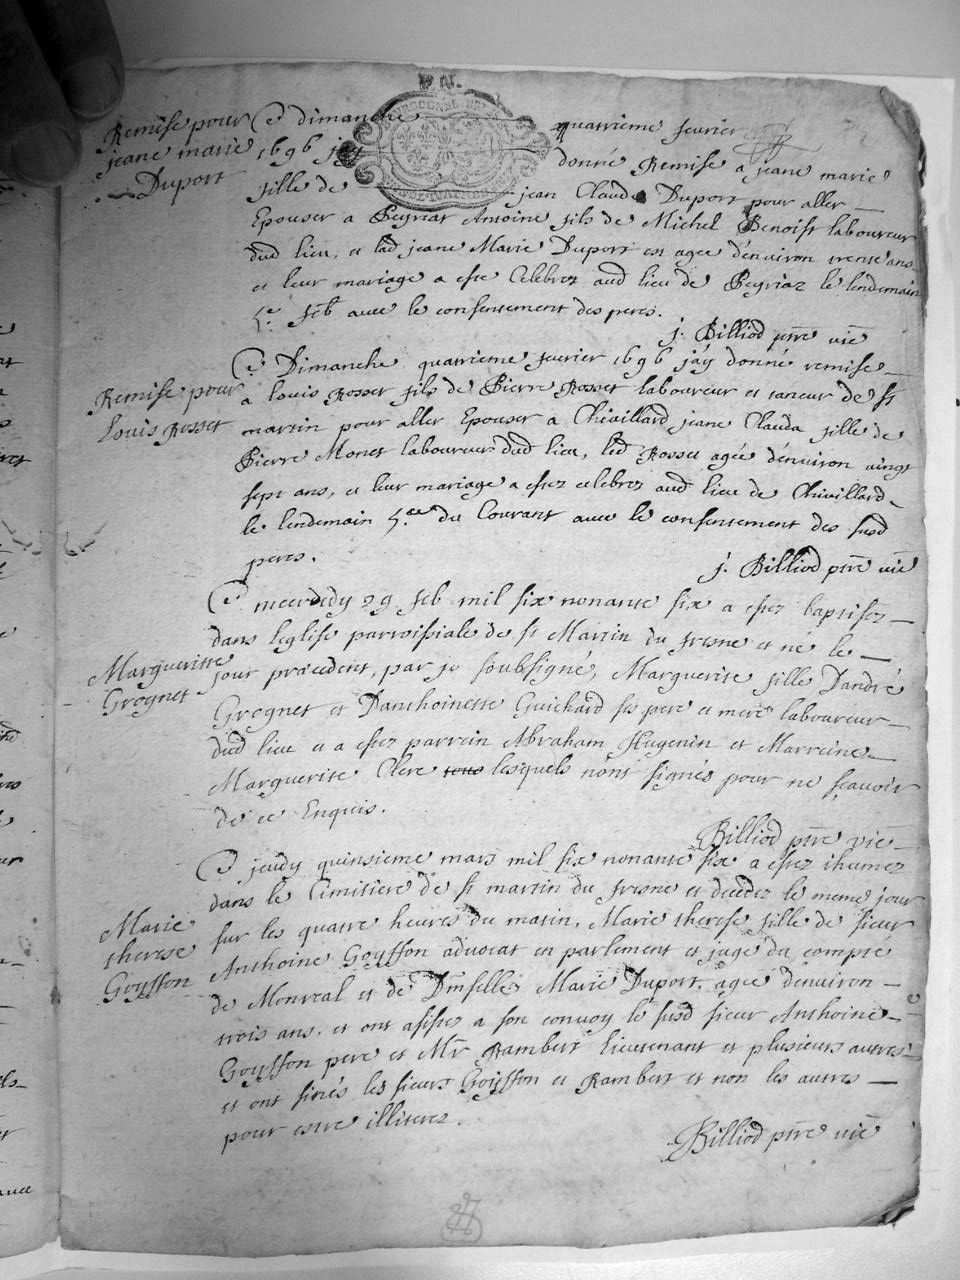 Remise pour
jeane marie
Duport
Ce dimanche quatrieme fevrier
1696 jay donné Remise a jeane marie
fille de jean Claude Duport pour aller
Epouser a Peyriat Antoine fils de Michel Benoist laboureur
dud lieu, et lad jeane Marie Duport est agee d'environ trente ans
et leur mariage a este Celebrez aud lieu de Peyriaz le lendemain
5.e feb avec le consentement des peres.
j. Billiod ptre vic
Remise pour
Louis Rosset
Ce Dimanche quatrieme fevrier 1696 jay donné remise
a louis Rosset fils de Pierre Rosset laboureur et taneur de st
martin pour aller Epouser a Chivillard jeane Clauda fille de
Pierre Monet laboureur dud lieu, led Rosset agée d'environ vingt
sept ans, et leur mariage a estez celebrez aud lieu de Chivillard
le lendemain 5.e du Courant avec le consentement des susd
peres.
j. Billiod ptre vic
Margueritte
Grognet
Ce mecredy 29 feb mil six nonante six a estez baptisez
dans leglise parroissiale de st Martin du fresne et né le
jour precedent, par je soubsigné, Marguerite fille Dandré
Grognet et Danthoinette Guichard ses pere et mere laboureur
dud lieu et a estez parrein Abraham Hugenin et Marreine
Marguerite Clerc tous lesquels nont signés pour ne scavoir
de ce Enquis.
Billiod ptre vic
Marie
therese
Goyffon
Ce jeudy quinsieme mars mil six nonante six a estez ihumez
dans le Cimitiere de st martin du fresne et decedez le meme jour
sur les quatre heures du matin, Marie therese fille de sieur
Anthoine Goyffon advocat en parlement et juge du compté
de Monreal et de Dmselle Marie Duport, agee denviron
trois ans. et ont asiste a son convoy le susd sieur Anthoine
Goyffon pere et Mr Rambert lieutenant et plusieurs autres
et ont sinés les sieurs Goyffon et Rambert et non les autres
pour estre illiteres.
Billiod ptre vic